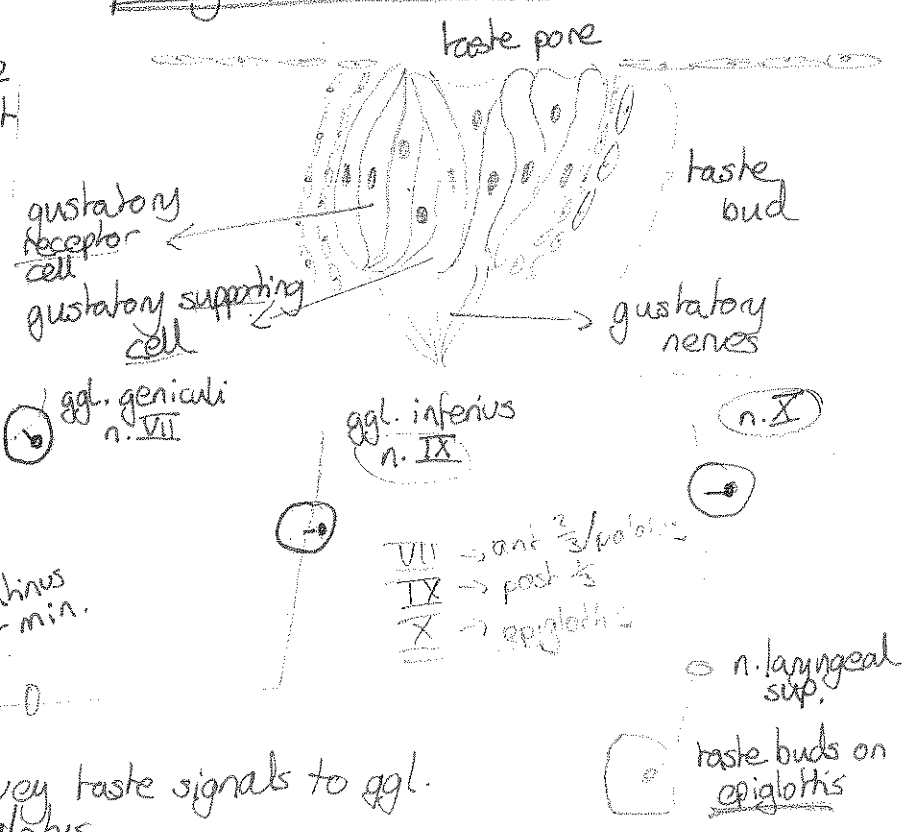 taste pore
taste
bud
gustatory
receptor
cell
gustatory supporting
cell
gustatory
nerves
ggl. geniculi
n. VII
ggl. inferius
n. IX
n. X
VII → ant 2/3/
IX → post 1/3
X → epiglottis
min.
n. laryngeal
sup.
taste buds on
epiglottis
taste signals to ggl.